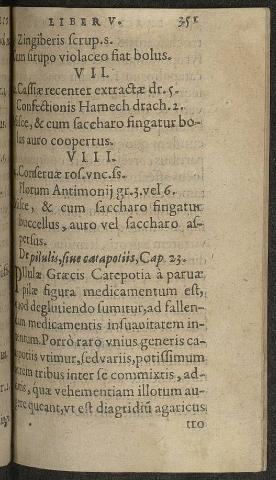 LIBER V. 351
Zingiberis scrup.s.
sirupo violaceo fiat bolus.
VII.
Cassiæ recenter extractæ dr.5.
Confectionis Hamech drach.2.
& cum saccharo fingatur bo-
lus auro coopertus.
VIII.
Conseruæ ros.vnc.ss.
Florum Antimonij gr.3.vel 6.
& cum saccharo fingatur
buccellus, auro vel saccharo as-
persus.
De pilulis, siue catapotiis, Cap. 23.
PIllulæ Græcis Catepotia à paruæ
pilæ figura medicamentum est,
quod deglutiendo sumitur, ad fallen-
medicamentis insuauitatem in-
uentum. Porrò raro vnius generis ca-
tapotiis vtimur, sed variis, potissimum
autem tribus inter se commixtis, ad-
ditis, quæ vehementiam illorum au-
gere queant, vt est diagridiũ agaricus
tro